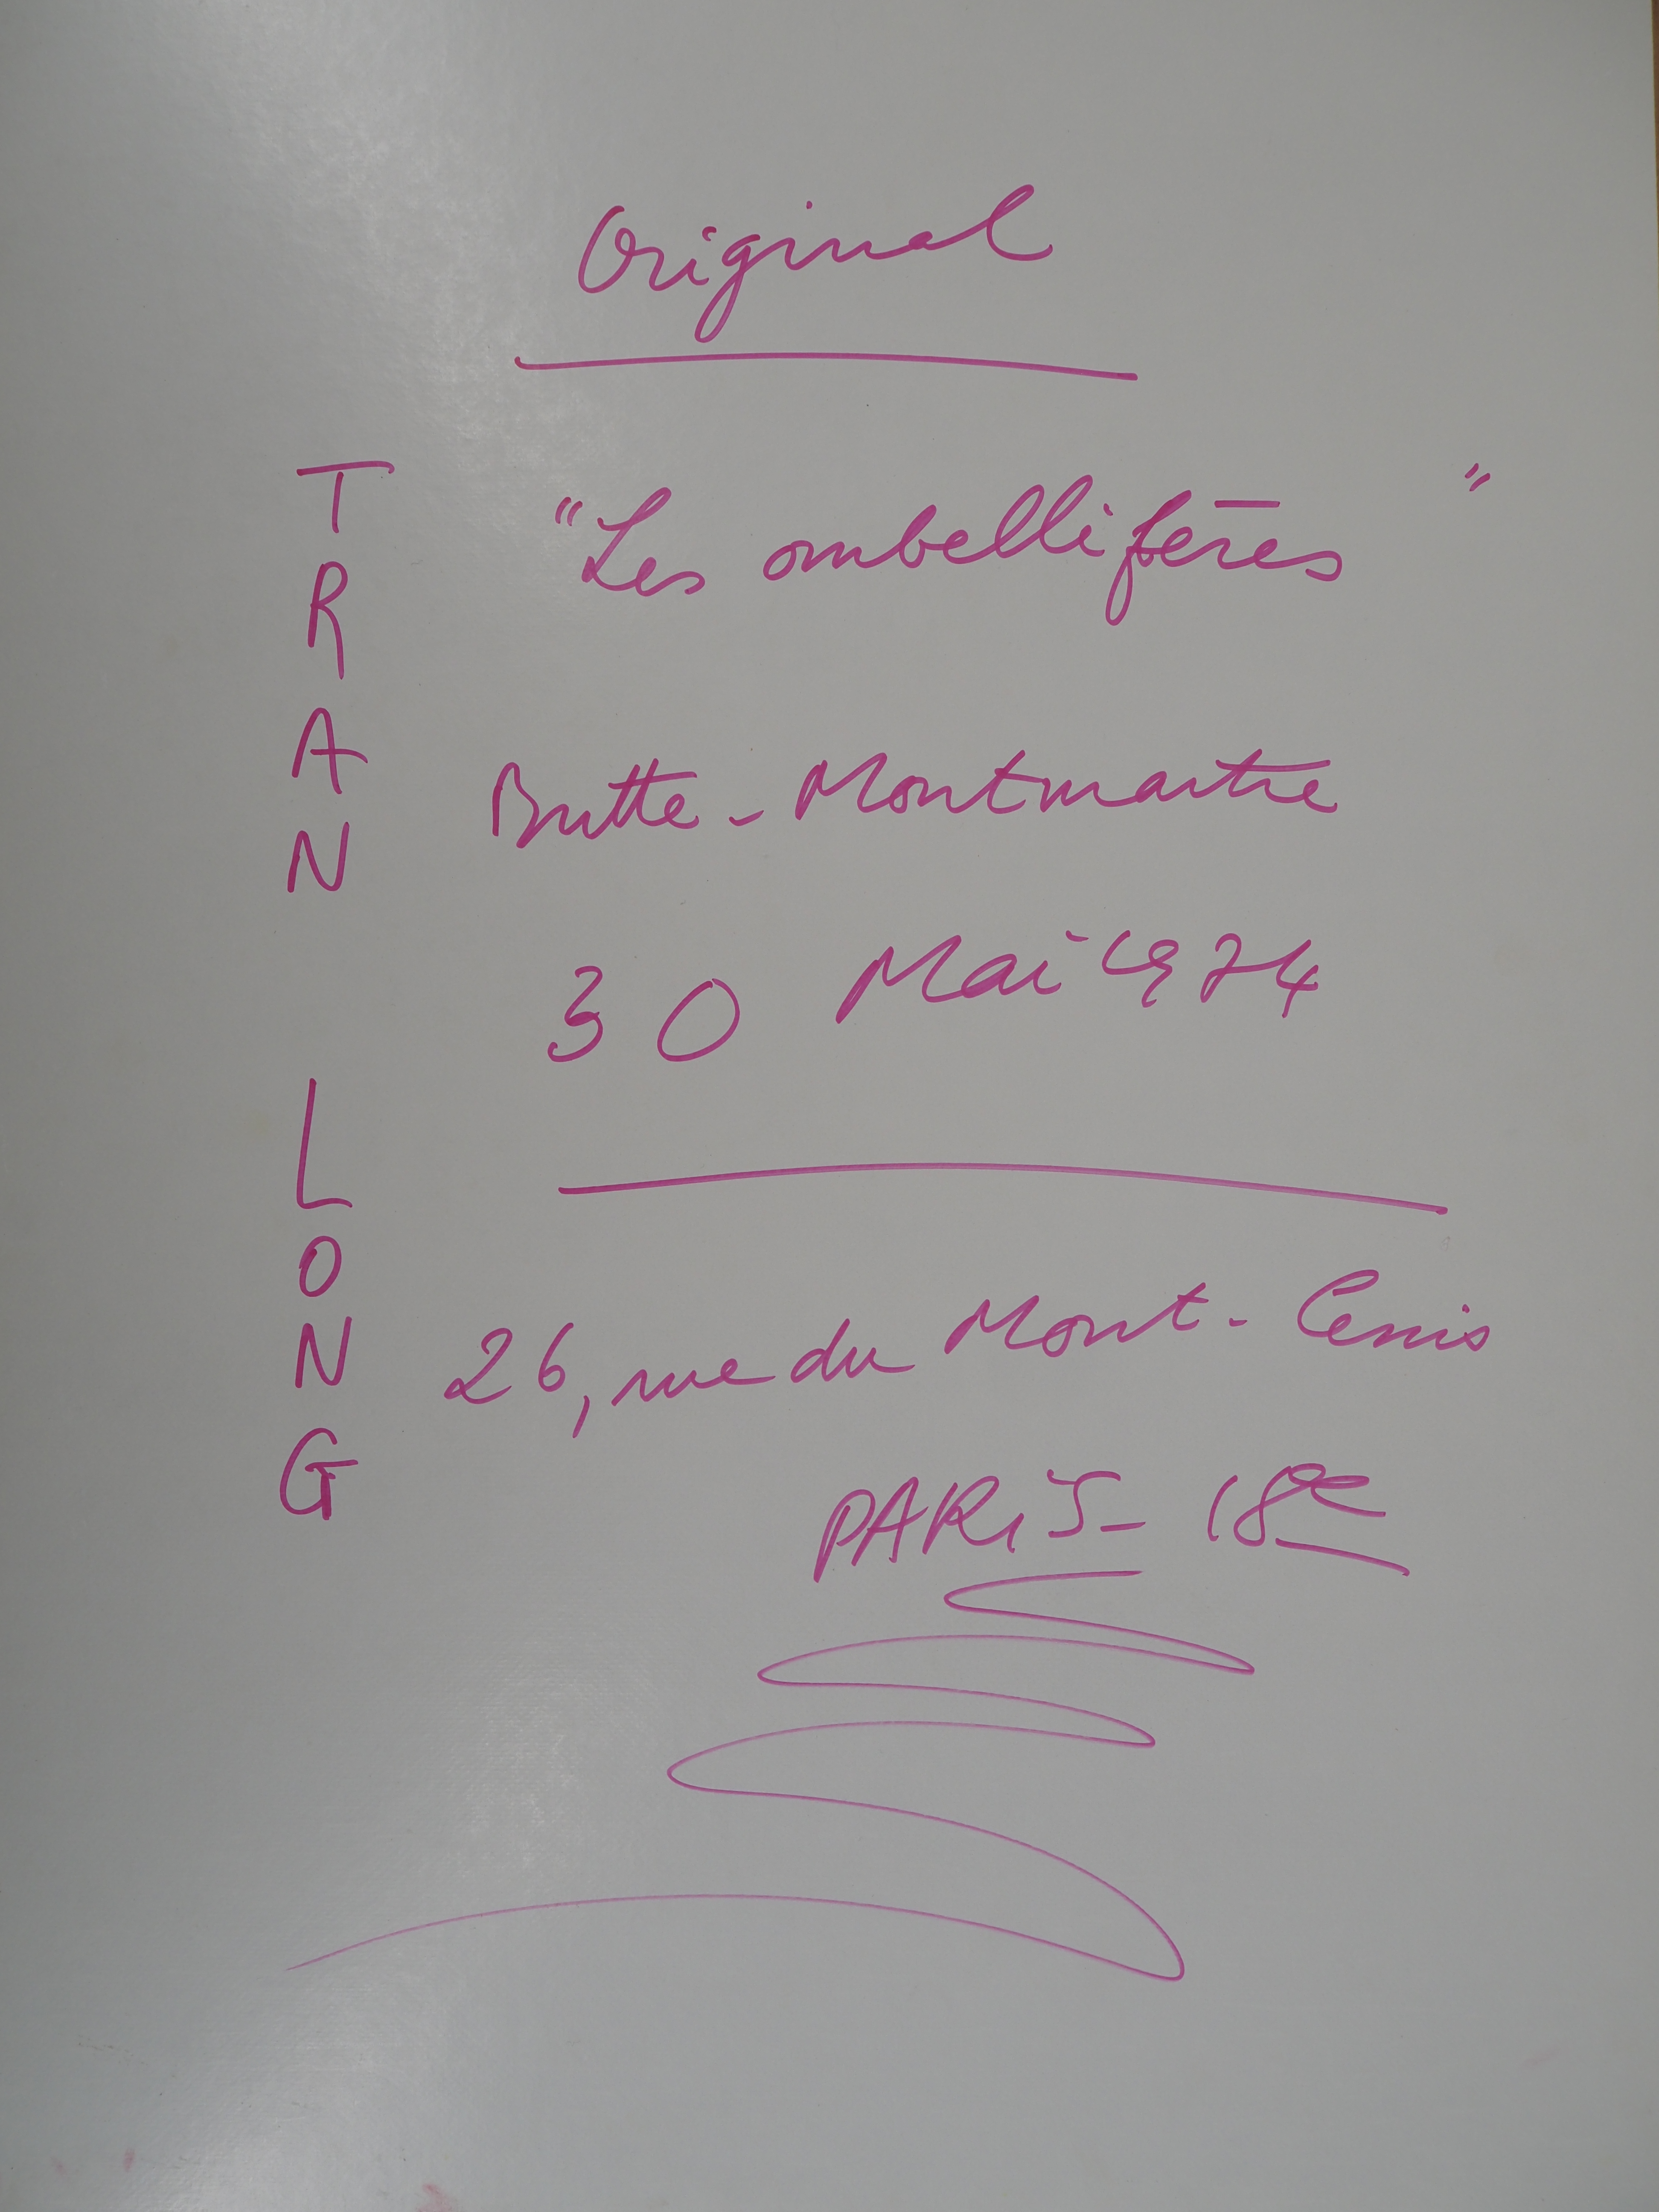 Original
TRAN LONG
"Les ombellifères"
Butte-Montmartre
30 Mai 1974
26, rue du Mont-Cenis
PARiS- 18e